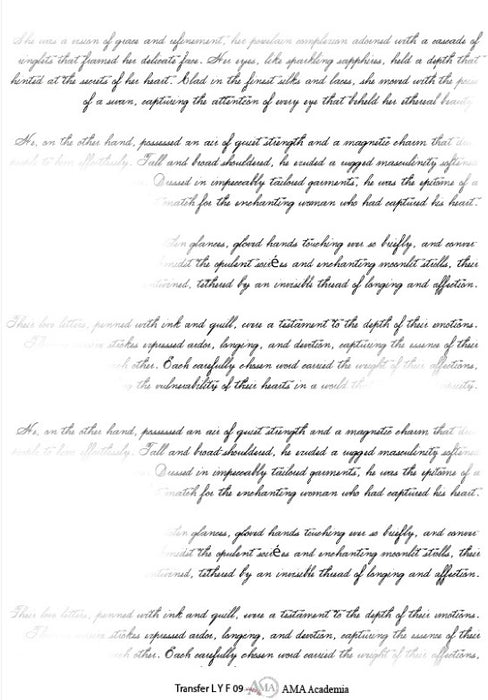 She was a vision of grace and refinement, her porcelain complexion adorned with a cascade of
ringlets that framed her delicate face. Her eyes, like sparkling sapphires, held a depth that
hinted at the secrets of her heart. Clad in the finest silks and laces, she moved with the poise
of a swan, capturing the attention of every eye that beheld her ethereal beauty
He, on the other hand, possessed an air of quiet strength and a magnetic charm that
effortlessly. Tall and broad-shouldered, he exuded a rugged masculinity softened
Dressed in impeccably tailored garments, he was the epitome of a
match for the enchanting woman who had captured his heart.
glances, gloved hands touching ever so briefly, and
the opulent soirées and enchanting moonlit strolls, their
tethered by an invisible thread of longing and affection.
Their love letters, penned with ink and quill, were a testament to the depth of their emotions.
strokes expressed ardor, longing, and devotion, capturing the essence of their
other. Each carefully chosen word carried the weight of their affections,
the vulnerability of their hearts in a world that
He, on the other hand, possessed an air of quiet strength and a magnetic charm that
effortlessly. Tall and broad-shouldered, he exuded a rugged masculinity softened
Dressed in impeccably tailored garments, he was the epitome of a
match for the enchanting woman who had captured his heart.
glances, gloved hands touching ever so briefly, and
the opulent soirées and enchanting moonlit strolls, their
tethered by an invisible thread of longing and affection.
Their love letters, penned with ink and quill, were a testament to the depth of their emotions.
strokes expressed ardor, longing, and devotion, capturing the essence of their
other. Each carefully chosen word carried the weight of their affections,
Transfer LY F 09 AMA AMA Academia